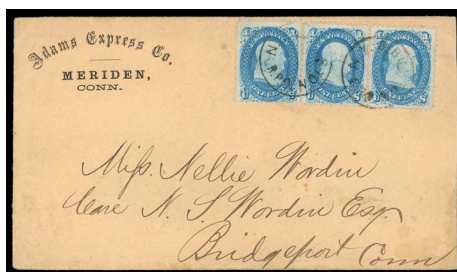 Adams Express Co.
MERIDEN,
CONN.
Miss. Nellie Wordin
Care N. S. Wordin Esq
Bridgeport Conn